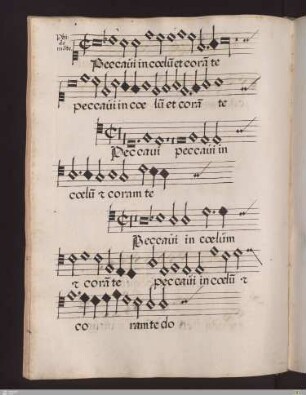 Peccavi in cœlũ et corã te
peccavi in coe lũ et corã te
Peccavi peccavi in
cœlũ & coram te
Peccavi in cœlum
& corã te peccavi in cœlũ &
co ram te do